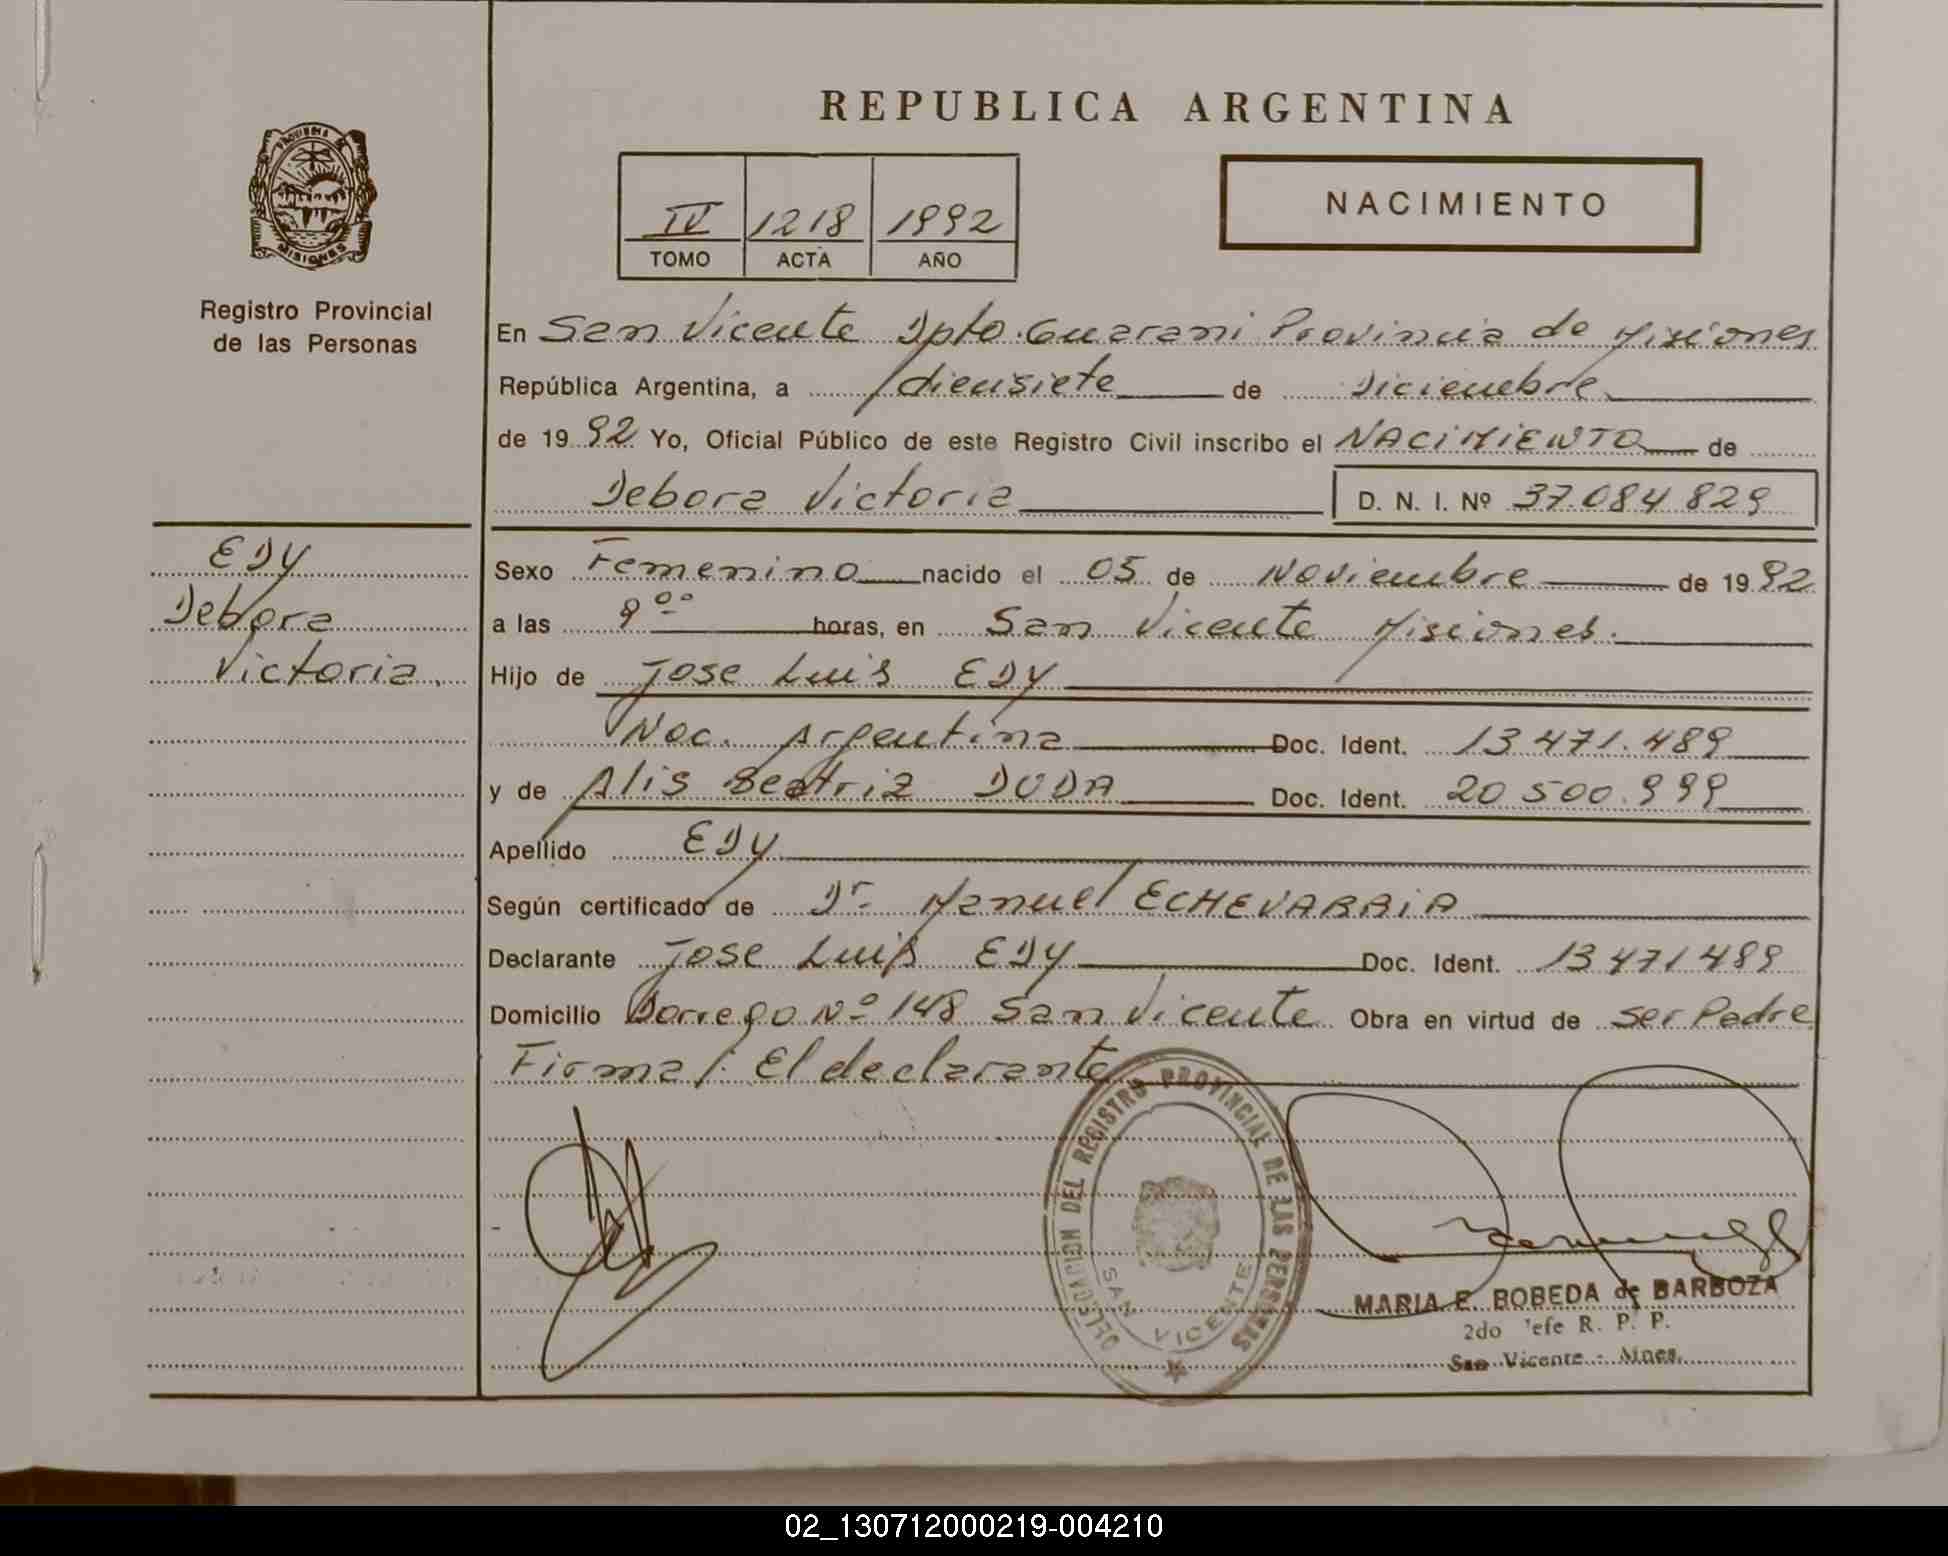 REPUBLICA ARGENTINA
PROVINCIA
MISIONES
Registro Provincial
de las Personas
IV 1218 1992
TOMO ACTA AÑO
NACIMIENTO
En San Vicente Dpto. Guarani Provincia de Misiones
República Argentina, a diecisiete de Diciembre
de 1992 Yo, Oficial Público de este Registro Civil inscribo el NACIMIENTO de
Debora Victoria D. N. I. Nº 37.084.829
EDY
Debora
Victoria.
Sexo Femenino nacido el 05 de Noviembre de 1992
a las 9⁰⁰ horas, en San Vicente Misiones.
Hijo de Jose Luis EDY
Nac. Argentina Doc. Ident. 13.471.489
y de Alis Beatriz DUDA Doc. Ident. 20.500.999
Apellido EDY
Según certificado de Dr. Manuel ECHEVARRIA
Declarante Jose Luis EDY Doc. Ident. 13471489
Domicilio Dorrego Nº 148 San Vicente Obra en virtud de ser Padre
Firma/: El declarante
DELEGACION DEL REGISTRO PROVINCIAL DE LAS PERSONAS
SAN VICENTE
MARIA E. BOBEDA de BARBOZA
2do Jefe R. P. P.
San Vicente - Mnes.
02_130712000219-004210